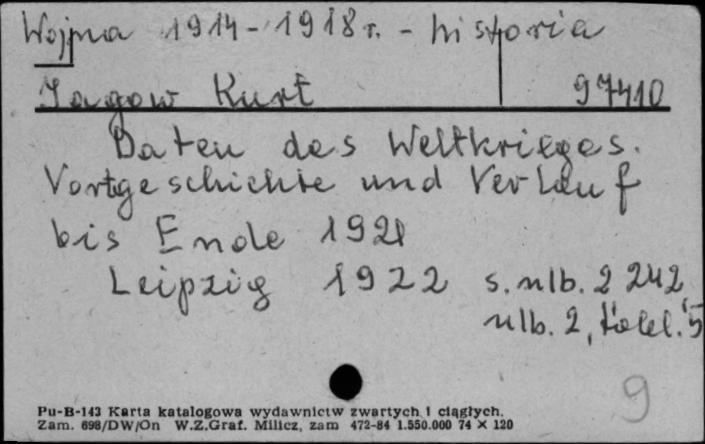 Wojna 1914-1918 r. - historia
Jagow Kurt 97410
Daten des Weltkrieges.
Vortgeschichte und Verlauf
bis Ende 1921
Leipzig 1922 s. nlb. 2 242
nlb. 2, tabl. 5
9
Pu-B-143 Karta katalogowa wydawnictw zwartych i ciągłych.
Zam. 698/DW/On W.Z.Graf. Milicz, zam 472-84 1.550.000 74 × 120